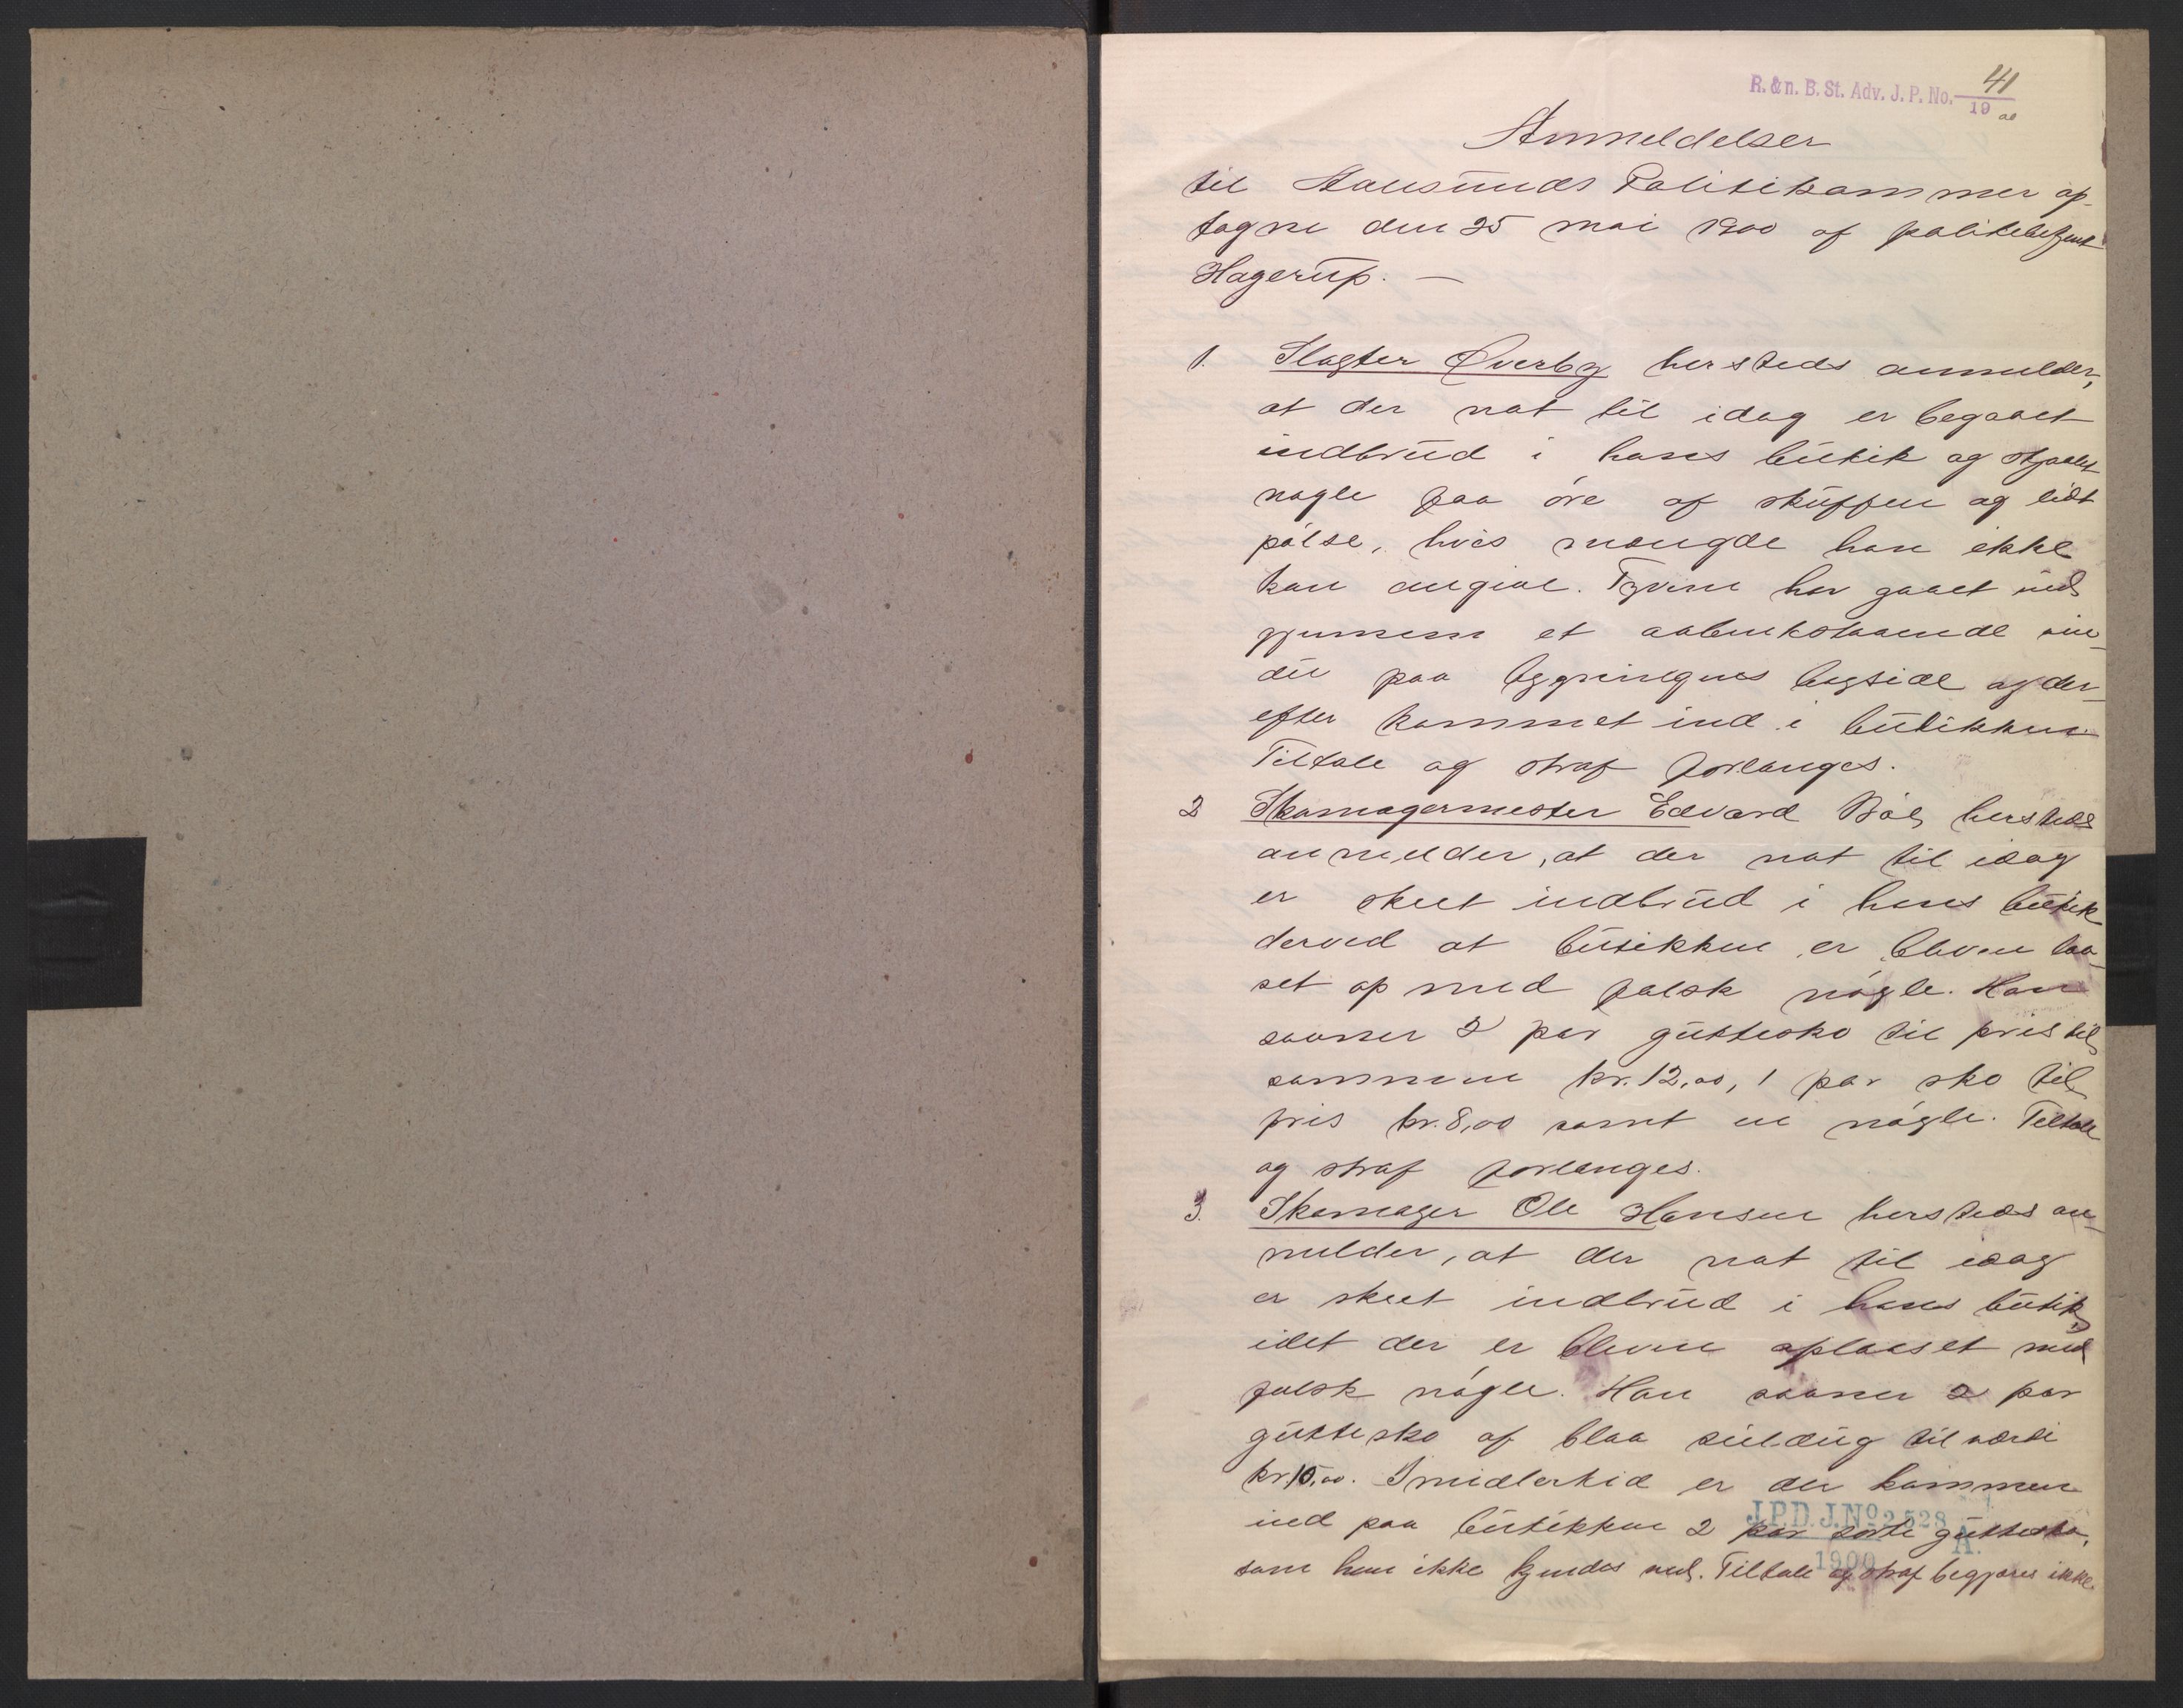 R. & n. B. St. Adv. J. P. No. 41
19 00
Anmeldelser
til Aalesunds Politikammer op-
tagne den 25 mai 1900 af politibetjent
Hagerup. —
1. Slagter Øverby hersteds anmelder,
at der nat til idag er begaaet
indbrud i hans butik og stjaalet
nogle faa øre af skuffen og lidt
pølse, hvis mængde han ikke
kan angive. Tyvene har gaaet ind
gjennem et aabentstaaende vin-
du paa bygningens bagside og der-
efter kommet ind i butikken.
Tiltale og straf forlanges.
2 Skomagermester Edvard Bøe hersteds
anmelder, at der nat til idag
er skeet indbrud i hans butik
derved at butikken er bleven laa-
set op med falsk nøgle. Han
savner 2 par guttesko til pris til-
sammen kr. 12,00, 1 par sko til
pris kr. 8,00 samt en nøgle. Tiltale
og straf forlanges.
3. Skomager Ole Hansen hersteds an-
melder, at der nat til idag
er skeet indbrud i hans butik,
idet der er bleven oplaaset med
falsk nøgle. Han savner 2 par
guttesko af blaa seildug til værdi
kr. 10,00. Imidlertid er der kommen
ind paa butikken 2 par sorte guttesko,
som han ikke kjendes ved. Tiltale og straf begjæres ikke.
J.P.D. J.No 2528 A.
1900